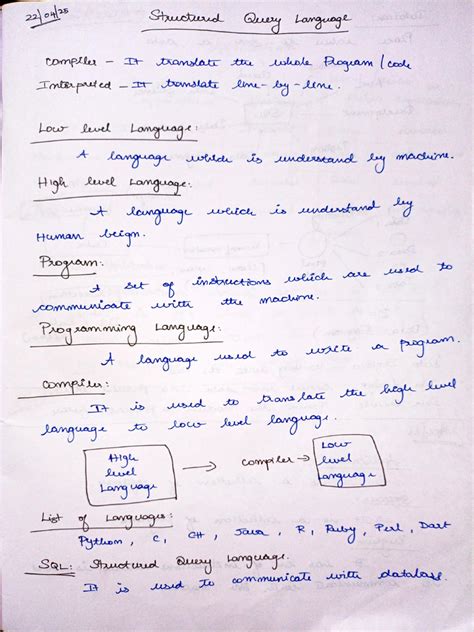 22/04/25
Structured Query Language
Compiler - It translate the whole Program / code
Interpreted - It translate line-by-line.
Low level Language:
A language which is understand by machine.
High level Language:
A language which is understand by
Human beign.
Program:
A set of instructions which are used to
communicate with the machine.
Programming Language:
A language used to write a program.
Compiler:
It is used to translate the high level
language to low level language.
High level Language → compiler → Low level language
List of Languages:
Python, C, C++, Java, R, Ruby, Perl, Dart
SQL: Structured Query Language.
It is used to communicate with database.